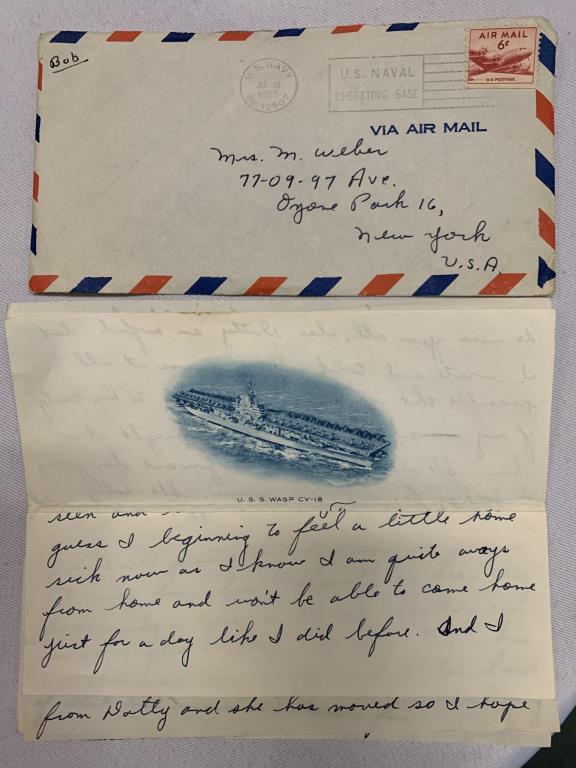 Bob
U.S. NAVY
U.S. NAVAL
OPERATING BASE
AIR MAIL
6¢
U.S. POSTAGE
VIA AIR MAIL
Mrs. M. Weber
77-09-97 Ave.
Ozone Park 16,
New York
U.S.A.
U. S. S. WASP CV-18
seen and
guess I beginning to feel a little home
sick now as I know I am quite aways
from home and won't be able to come home
just for a day like I did before. And I
from Dotty and she has moved so I hope